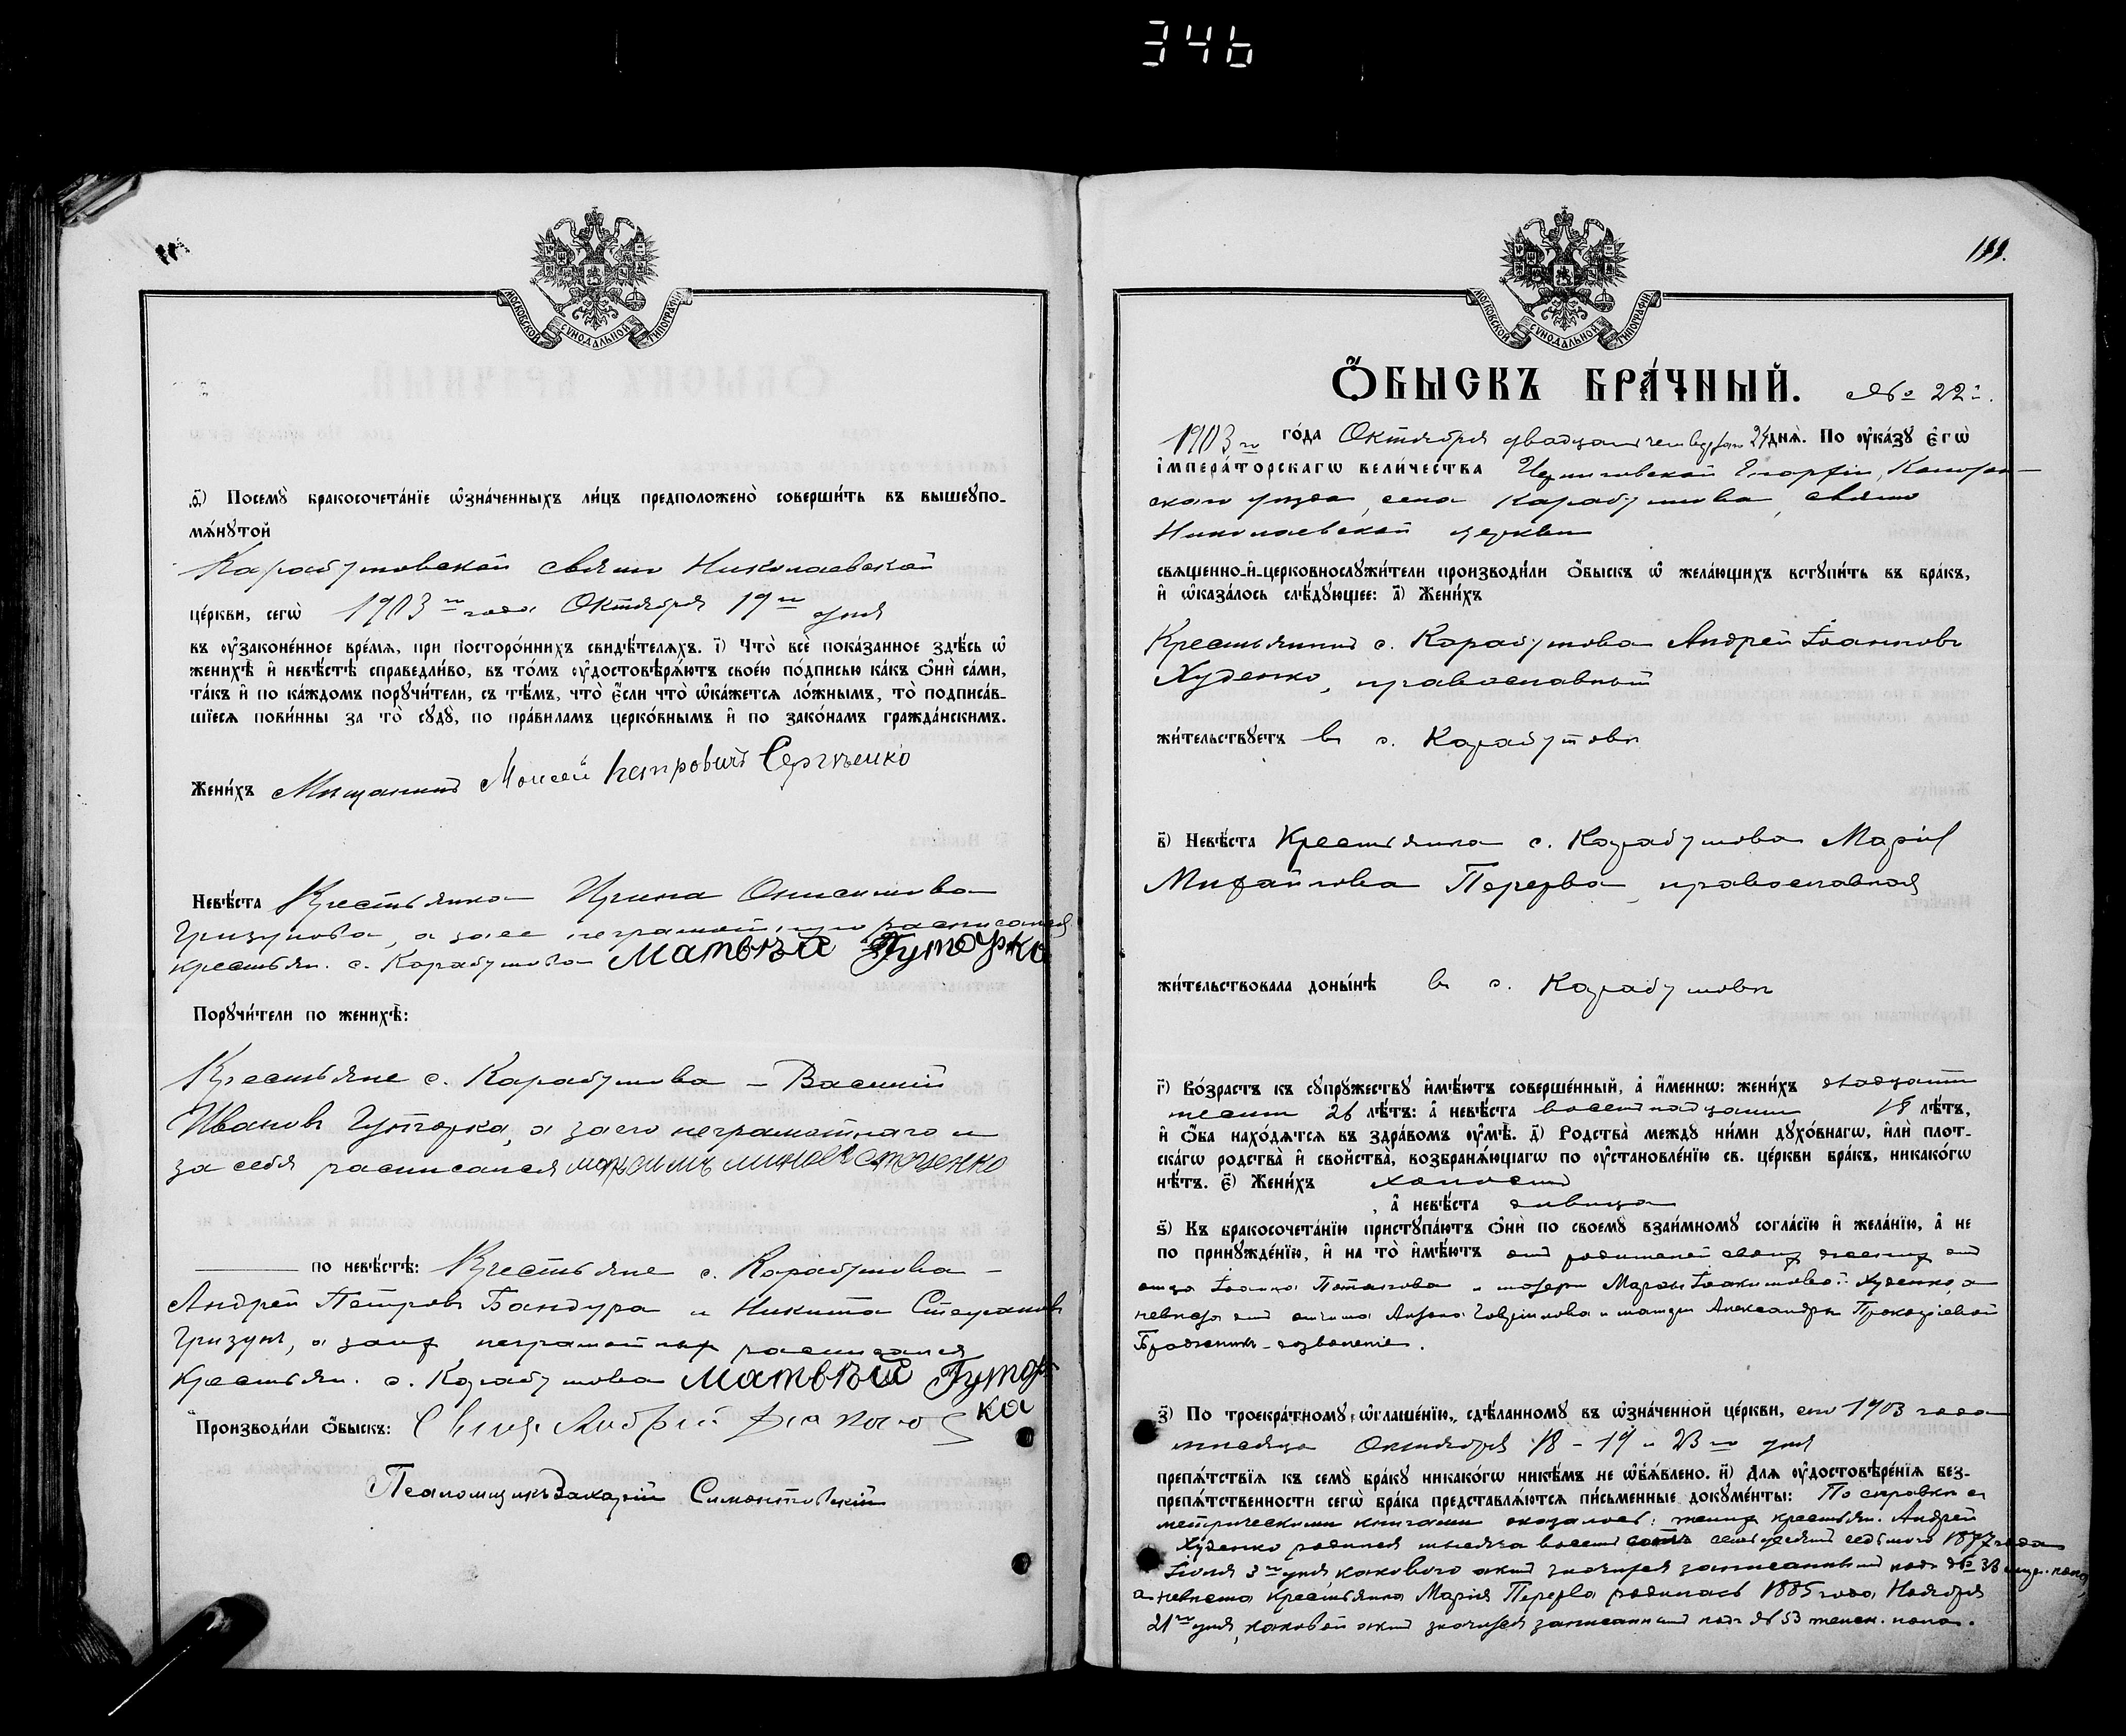 346
МОСКОВСКОЙ СѴНОДАЛЬНОЙ ТИПОГРАФІИ
ѳ҃) Посемꙋ̀ бракосочета́нїе ѡ҆зна́ченныхъ ли́цъ предположено̀ соверши́ть въ вышеупо-
мѧ́нꙋтой
Карабутовской свято Николаевской
це́ркви, сегѡ̀ 1903 го года Октября 19 го дня
въ ᲂу҆законе́нное вре́мѧ, при посторо́ннихъ свидѣ́телѧхъ. і҃) Что̀ всѐ пока́занное здѣ́сь ѡ҆
женихѣ̀ и҆ невѣ́стѣ справедли́во, въ то́мъ ᲂу҆достовѣрѧ́ютъ свое́ю по́дписью ка́къ ѻ҆нѝ са́ми,
та́къ и҆ по ка́ждомъ порꙋчи́тели, съ тѣ́мъ, что̀ є҆́сли что̀ ѡ҆ка́жетсѧ ло́жнымъ, то̀ подписа́в-
шїесѧ пови́нны за то̀ сꙋдꙋ̀, по пра́виламъ церко́внымъ и҆ по зако́намъ гражда́нскимъ.
Жени́хъ Мещанинъ Моисей Петровичъ Сергѣенко
Невѣ́ста Крестьянка Ирина Онисимова
Гризунова, а за ее неграмотную расписался
крестьян. с. Карабутова Матвѣй Гуторка
Порꙋчи́тели по женихѣ̀:
Крестьяне с. Карабутова – Василій
Ивановъ Гуторка, а за его неграмотнаго и
за себя расписался
по невѣ́стѣ: Крестьяне с. Карабутова –
Андрей Петровъ Бандура и Никита Стефановъ
Гризунъ, а за ихъ неграмотныхъ расписался
Крестьян. с. Карабутова Матвѣй Гутор
ка
Производи́ли ѻ҆́быскъ: Свящ. Андрей
Псаломщикъ Захарій Симонтовскій
111.
МОСКОВСКОЙ СѴНОДАЛЬНОЙ ТИПОГРАФІИ
Ѻ҆́БЫСКЪ БРА́ЧНЫЙ. № 22й.
1903 го го́да Октября двадцать четвертаго 24 днѧ̀. По ᲂу҆ка́зꙋ є҆гѡ̀
і҆мпера́торскагѡ вели́чества Черниговской Епархіи, Конотоп-
скаго уѣзда, села Карабутова, свято
Николаевской церкви
свѧщенно-и҆-церковнослꙋжи́тели производи́ли ѻ҆́быскъ ѡ҆ жела́ющихъ встꙋпи́ть въ бра́къ,
и҆ ѡ҆каза́лось слѣ́дꙋющее: а҃) Жени́хъ
Крестьянинъ с. Карабутова Андрей Іоанновъ
Худенко, православный
жи́тельствꙋетъ въ с. Карабутовѣ
в҃) Невѣ́ста Крестьянка с. Карабутова Марія
Михайлова Перерва, православная
жи́тельствовала доны́нѣ въ с. Карабутовѣ
г҃) Во́зрастъ къ сꙋпрꙋ́жествꙋ и҆мѣ́ютъ соверше́нный, а҆ и҆́менно: жени́хъ двадцати
шести 26 лѣ́тъ: а҆ невѣ́ста восемнадцати 18 лѣ́тъ,
и҆ ѻ҆́ба нахо́дѧтсѧ въ здра́вомъ ᲂу҆мѣ̀. д҃) Родства̀ междꙋ ни́ми дꙋхо́внагѡ, и҆лѝ плот-
ска́гѡ родства̀ и҆ свойства̀, возбранѧ́ющагѡ по ᲂу҆становле́нїю св. це́ркви бра́къ, никако́гѡ
нѣ́тъ. є҃) Жени́хъ холостъ
, а҆ невѣ́ста дѣвица
ѕ҃) Къ бракосочета́нїю пристꙋпа́ютъ ѻ҆нѝ по своемꙋ̀ взаи́мномꙋ согла́сїю и҆ жела́нїю, а҆ не
по принꙋжде́нїю, и҆ на то̀ и҆мѣ́ютъ отъ родителей своихъ женихъ отъ
отца Іоанна Потапова и матери Маріи Іоакимовой Худенко, а
невѣста отъ отчима и матери Александры Прокопіевой
дозволеніе.
з҃) По троекра́тномꙋ ѡ҆глаше́нїю, сдѣ́ланномꙋ въ ѡ҆зна́ченной це́ркви, сего 1903 года
мѣсяца Октября 18 – 19 и 23 го дня
препѧ́тствїѧ къ семꙋ̀ бра́кꙋ никако́гѡ никѣ́мъ не ѡ҆б̾ѧ́влено. и҃) Длѧ ᲂу҆достовѣре́нїѧ без-
препѧ́тственности сегѡ̀ бра́ка представлѧ́ютсѧ пи́сьменные докꙋме́нты: По справкѣ съ
метрическими книгами оказалось: женихъ крестьян. Андрей
Худенко родился тысяча восемь сотъ семьдесятъ седьмого 1877 года
Іюля 3 го дня, каковой актъ значится записаннымъ подъ № 38 мужс. пола,
а невѣста крестьянка Марія Перерва родилась 1885 года, Ноября
21 го дня, каковой актъ значится записаннымъ подъ № 53 женск. пола.